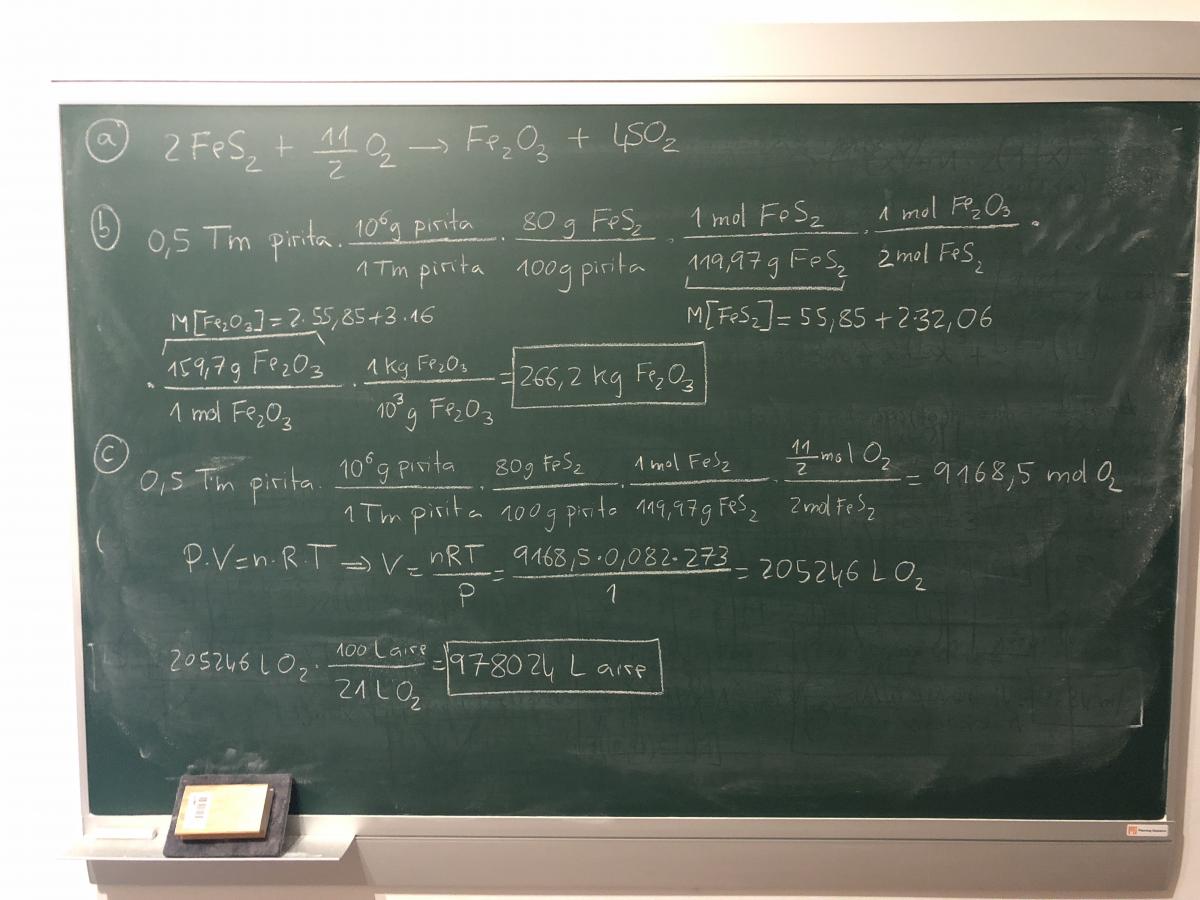 a 2 FeS₂ + 11/2 O₂ → Fe₂O₃ + 4SO₂
b 0,5 Tm pirita · 10⁶g pirita/1 Tm pirita · 80 g FeS₂/100g pirita · 1 mol FeS₂/119,97 g FeS₂ · 1 mol Fe₂O₃/2 mol FeS₂ ·
M[Fe₂O₃]=2·55,85+3·16 M[FeS₂]=55,85+2·32,06
· 159,7g Fe₂O₃/1 mol Fe₂O₃ · 1 kg Fe₂O₃/10³g Fe₂O₃ = 266,2 kg Fe₂O₃
c 0,5 Tm pirita · 10⁶g pirita/1 Tm pirita · 80g FeS₂/100g pirita · 1 mol FeS₂/119,97g FeS₂ · 11/2 mol O₂/2mol FeS₂ = 9168,5 mol O₂
P·V=n·R·T ⇒ V= nRT/P = 9168,5·0,082·273/1 = 205246 L O₂
205246 L O₂ · 100 L aire/21 L O₂ = 978024 L aire